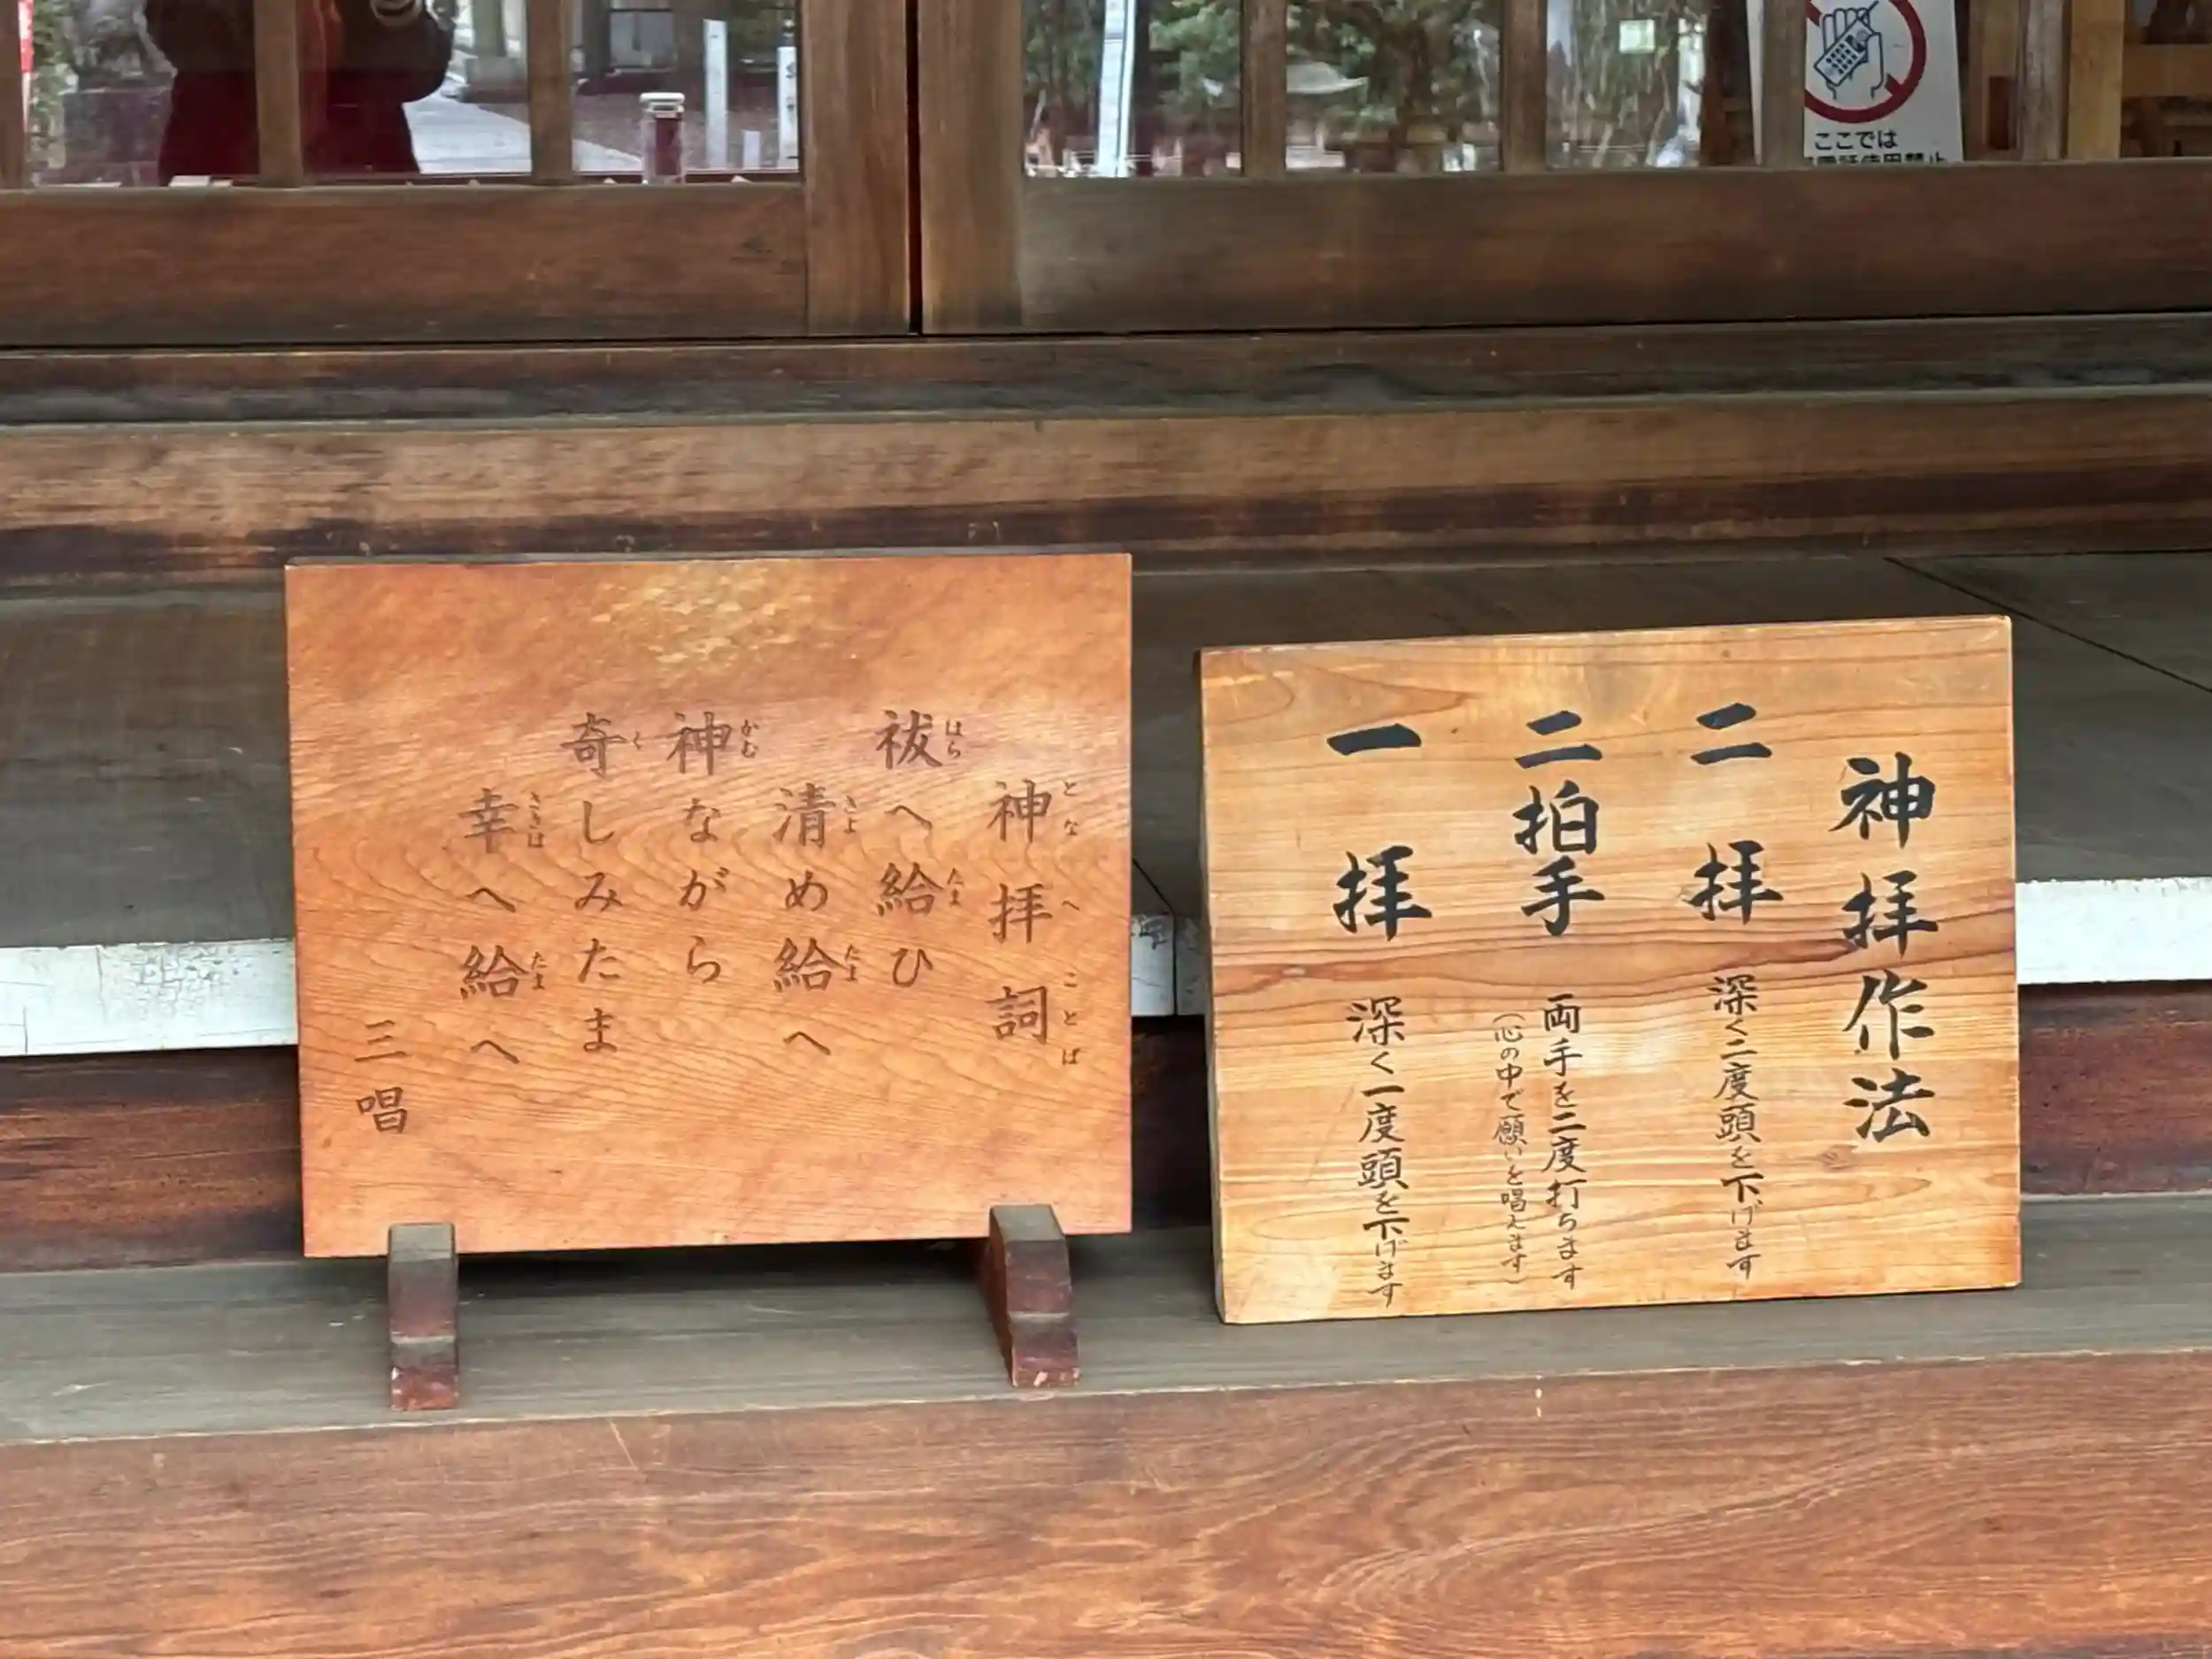 ここでは
神拝詞
となへことば
祓へ給ひ
はら たま
清め給へ
きよ たま
神ながら
かむ
奇しみたま
く
幸へ給へ
さきは たま
三唱
神拝作法
二拝 深く二度頭を下げます
二拍手 両手を二度打ちます
(心の中で願いを唱えます)
一拝 深く一度頭を下げます